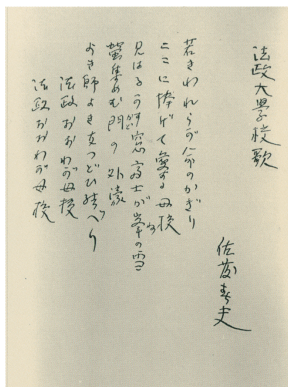 法政大學校歌
佐藤春夫
若きわれらが命のかぎり
ここに捧げて愛する母校
見はるかす窓富士が峯の雪
蛍集めむ門の外濠
よき師よき友つどひ結べり
法政おおわが母校
法政おおわが母校